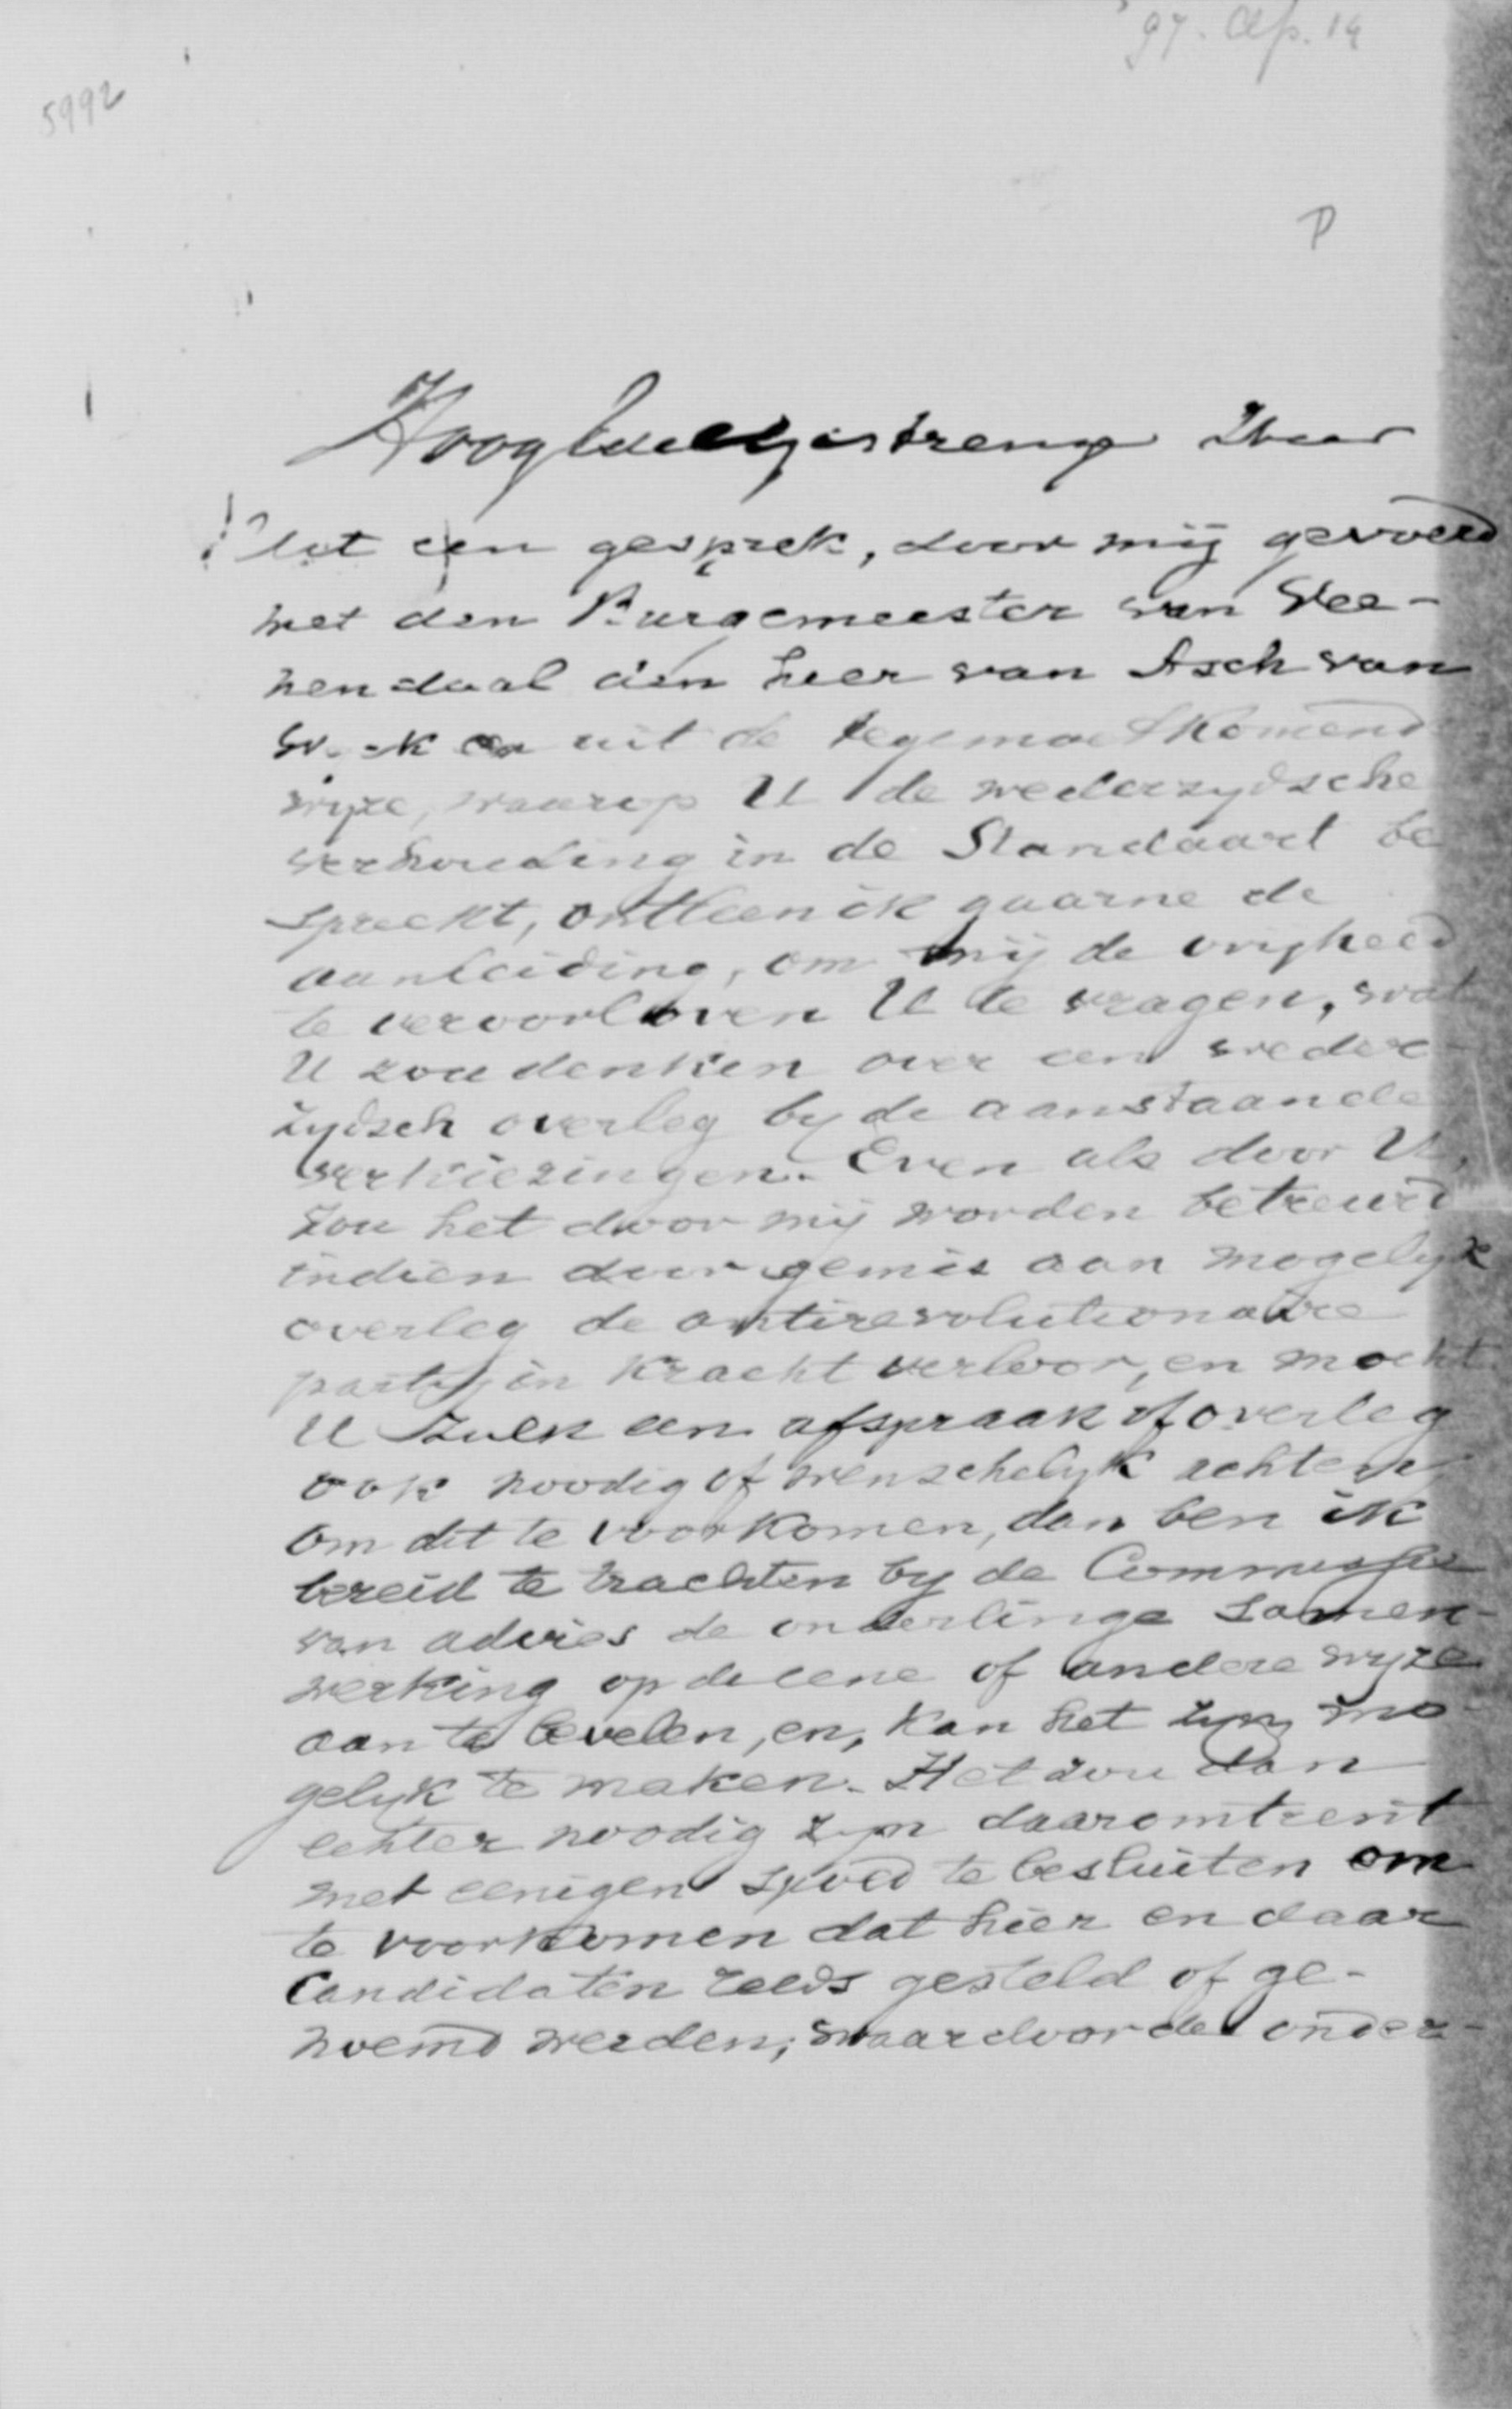 97. Ap. 14
5992
P
Hoogwelgestrenge Heer
Uit een gesprek, door mij gevoerd
met den Burgemeester van Vee-
nendaal den heer van Asch van
en uit de tegemoetkomend
wyze, waarop U de wederzydsche
verhouding in de Standaart be
spreekt, ontleen ik gaarne de
aanleiding, om mij de vrijheid
te veroorloven U te vragen, wat
U zou denken over een weder-
zydsch overleg by de aanstaande
verkiezingen. Even als door U,
zou het door mij worden betreurd
indien door gemis aan mogelyk
overleg de antirevolutionaire
partij in kracht verloor, en mocht
U zulk een afspraak of overleg
ook noodig of wenschelyk achten
om dit te voorkomen, dan ben ik
bereid te trachten by de Commissie
van advies de onderlinge samen-
werking op de eene of andere wyze
aan te bevelen, en, kan het zyn, mo
gelyk te maken. Het zou dan
echter noodig zyn daaromtrent
met eenigen spoed te besluiten om
te voorkomen dat hier en daar
Candidaten reeds gesteld of ge-
noemd werden; waardoor de onder-